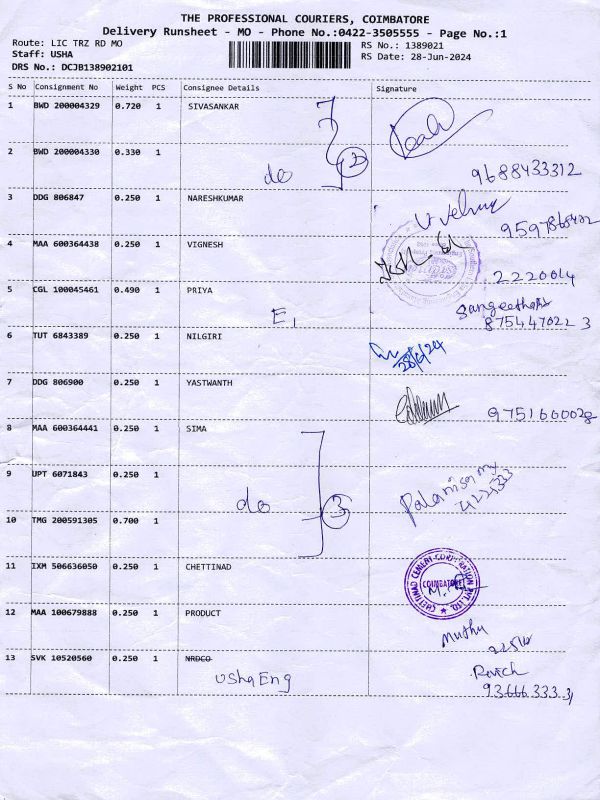 THE PROFESSIONAL COURIERS, COIMBATORE
Delivery Runsheet - MO - Phone No.:0422-3505555 - Page No.:1
Route: LIC TRZ RD MO
Staff: USHA
DRS No.: DCJB138902101
RS No.: 1389021
RS Date: 28-Jun-2024
S No Consignment No Weight PCS Consignee Details Signature
1 BWD 200004329 0.720 1 SIVASANKAR
2 BWD 200004330 0.330 1
do 2
9688433312
3 DDG 806847 0.250 1 NARESHKUMAR
4 MAA 600364438 0.250 1 VIGNESH
2220014
5 CGL 100045461 0.490 1 PRIYA
E1
8754470223
6 TUT 6843389 0.250 1 NILGIRI
28/6/24
7 DDG 806900 0.250 1 YASTWANTH
9751600028
8 MAA 600364441 0.250 1 SIMA
9 UPT 6071843 0.250 1
do 3
Palanisamy
10 TMG 200591305 0.700 1
11 IXM 506636050 0.250 1 CHETTINAD
CHETTINAD CEMENT CORPORATION PVT. LTD.
COIMBATORE
12 MAA 100679888 0.250 1 PRODUCT
Muthu
13 SVK 10520560 0.250 1 NRDCO
Usha Eng